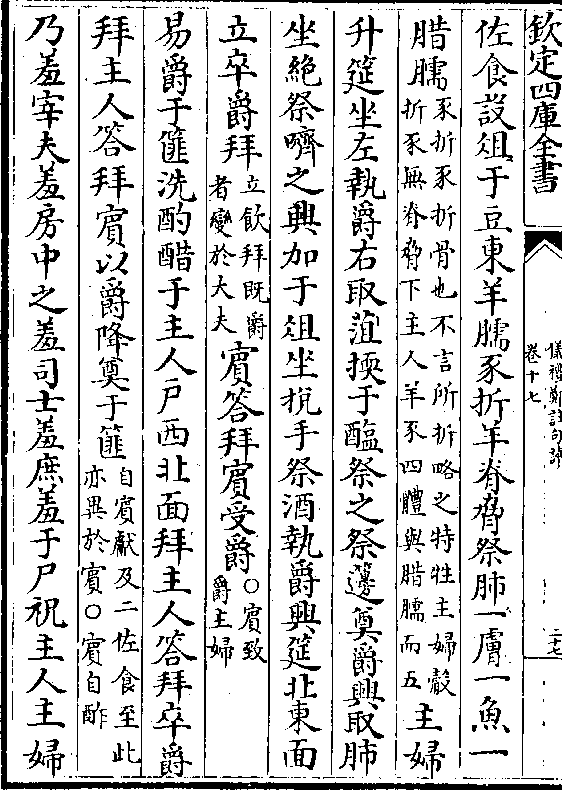 欽定四庫全書
儀禮鄭註句讀
卷十七
二十七
佐食設俎于豆東羊臑豕折羊脊脅祭肺一膚一魚一
腊臑豕折豕折骨也不言所折略之特牲主婦觳
折豕無脊脅下主人羊豕四體與腊臑而五主婦
升筵坐左執爵右取菹擩于醢祭之祭籩奠爵興取肺
坐絶祭嚌之興加于俎坐挩手祭酒執爵興筵北東面
立卒爵拜立飲拜既爵
者變於大夫賓答拜賓受爵○賓致
爵主婦
易爵于篚洗酌醋于主人戶西北面拜主人答拜卒爵
拜主人答拜賓以爵降奠于篚自賓獻及二佐食至此
亦異於賓○賓自酢
乃羞宰夫羞房中之羞司士羞庶羞于尸祝主人主婦